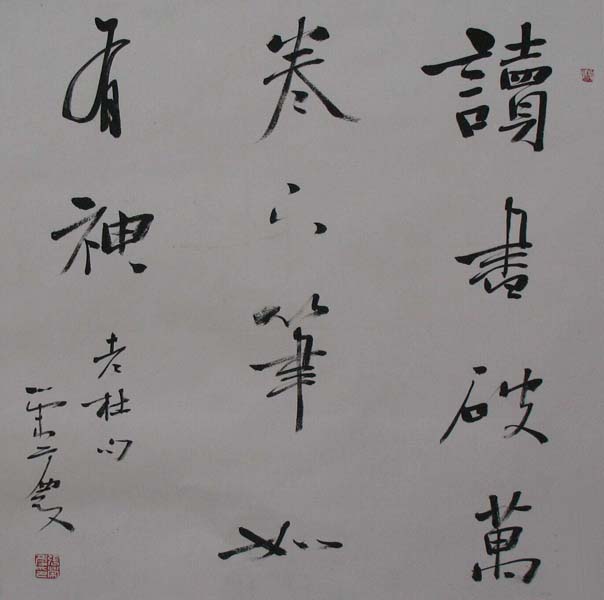 讀書破萬
卷下筆如
有神
老杜句